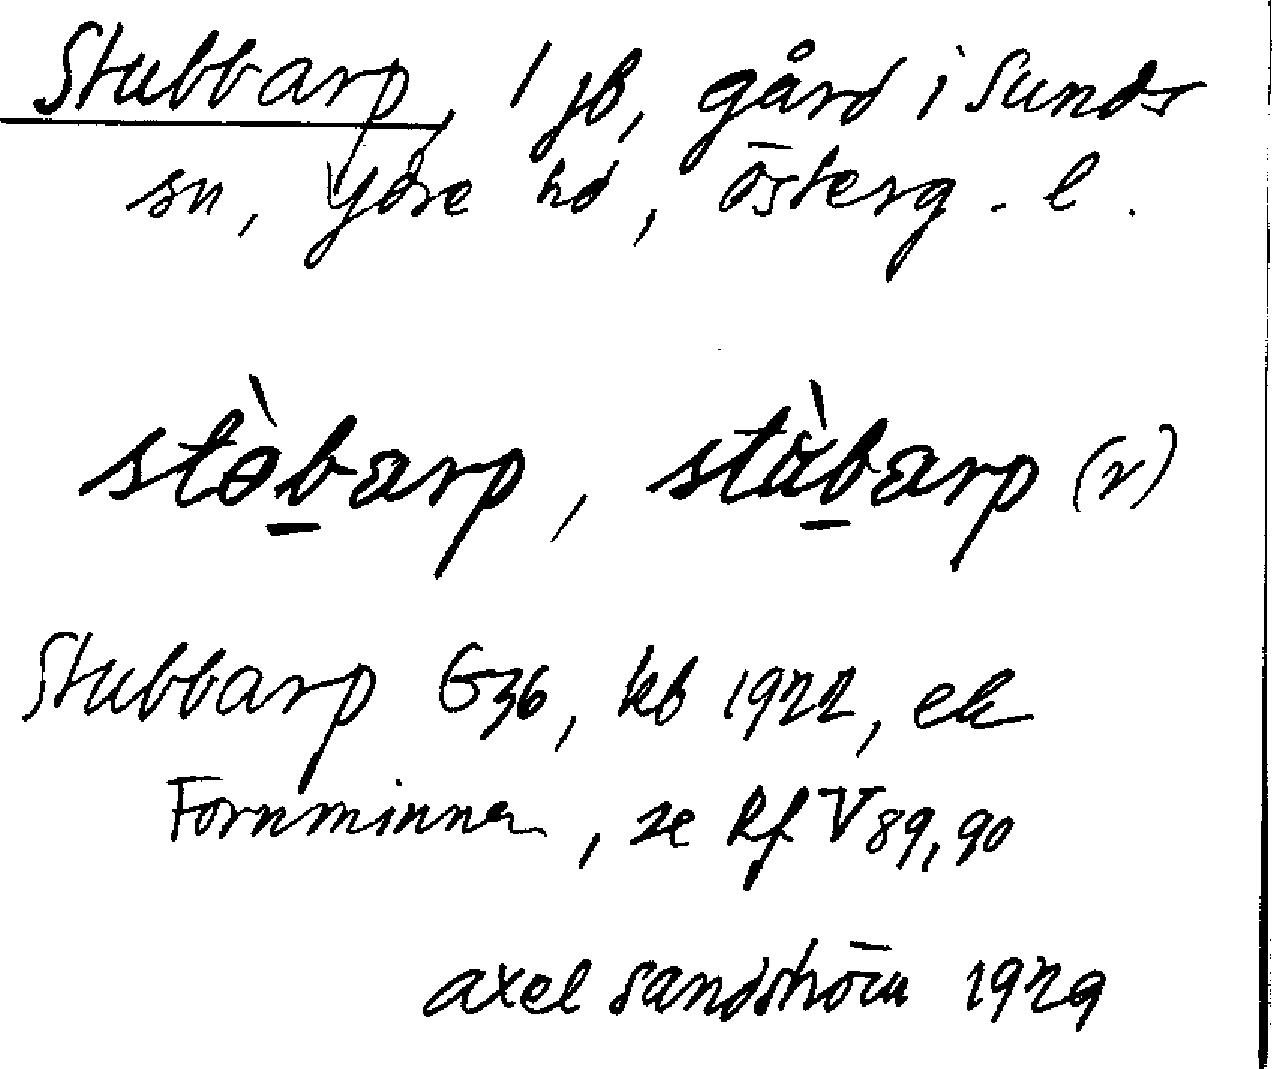 Stubbarp, 1 jb, gård i Sunds
sn, Ydre hd, Österg. l.
stòb̲arp, stàb̲arp (r)
Stubbarp G36, kb 1922, ek
Fornminnen, se Rf V 89, 90
axel sandström 1929